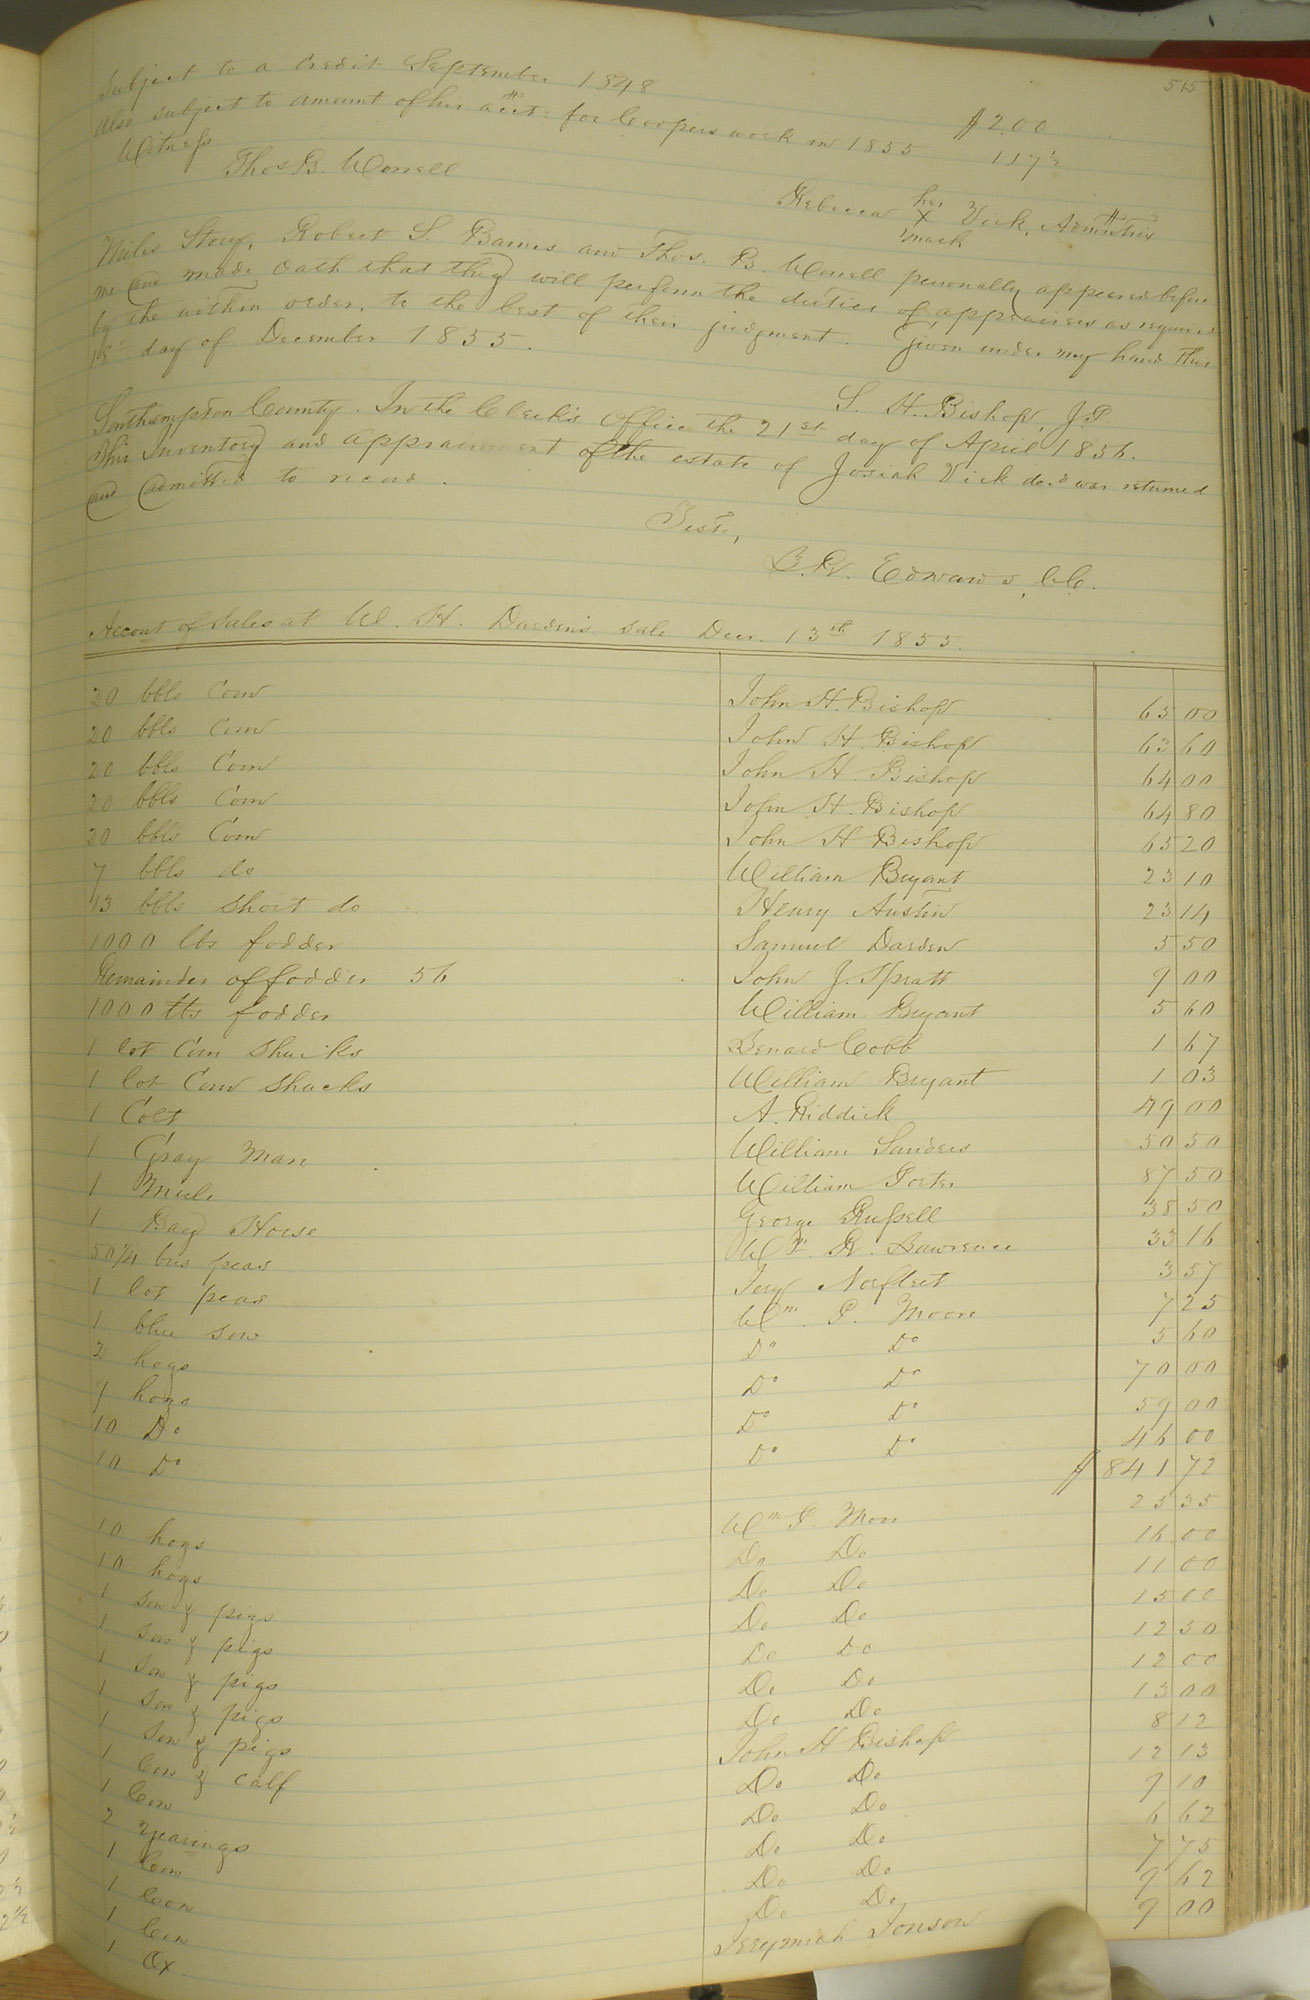 515
Subject to a Credit September 1848 $2.00
Also subject to amount of his acct: for Coopers work in 1855 1.17½
Witness
Thos B. Worrell
Rebecca her X mark Vick, Admintrix
Miles Story, Robert S. Barnes and Thos. B. Worrell personally appeared before
me and made oath that they will perform the duties of appraisers as required
by the within order, to the best of their judgment. Given under my hand this
18th day of December 1855.
S. H. Bishop, J.P.
Southampton County. In the Clerk's Office the 21st day of April 1856.
This Inventory and appraisement of the estate of Josiah Vick decd was returned
and admitted to record.
Teste,
B. R. Edwards, CC.
Account of Sales at W. H. Darden's sale Decr. 13th 1855.
20 bbls Corn John H. Bishop 65 00
20 bbls Corn John H. Bishop 63 60
20 bbls Corn John H. Bishop 64 00
20 bbls Corn John H. Bishop 64 80
20 bbls Corn John H Bishop 65 20
7 bbls do William Bryant 23 10
13 bbls short do Henry Austin 23 14
1000 lbs fodder Samuel Darden 5 50
Remainder of fodder 56 John J. Spratt 9 00
1000 lbs fodder William Bryant 5 60
1 lot Corn Shucks Benard Cobb 1 67
1 lot Corn Shucks William Bryant 1 03
1 Colt A. Riddick 49 00
1 Gray Mare William Sanders 50 50
1 Mule William Porter 87 50
1 Bay Horse George Russell 38 50
50¼ bus peas W. R. Lawrence 33 16
1 lot peas Norfleet 3 57
1 blue sow Wm. P. Moore 7 25
2 hogs Do Do 5 60
9 hogs Do Do 70 00
10 Do Do Do 59 00
10 Do Do Do 46 00
$ 841 72
10 hogs Wm P. Moor 25 35
10 hogs Do Do 16 00
1 Sow & pigs Do Do 11 00
1 Sow & pigs Do Do 15 00
1 Sow & pigs Do Do 12 50
1 Sow & pigs Do Do 12 00
1 Sow & pigs Do Do 13 00
1 Cow & Calf John H Bishop 8 12
1 Cow Do Do 12 13
2 Yearings Do Do 9 10
1 Cow Do Do 6 62
1 Cow Do Do 7 75
1 Cow Do Do 9 62
1 Ox Jerymiah Jonson 9 00